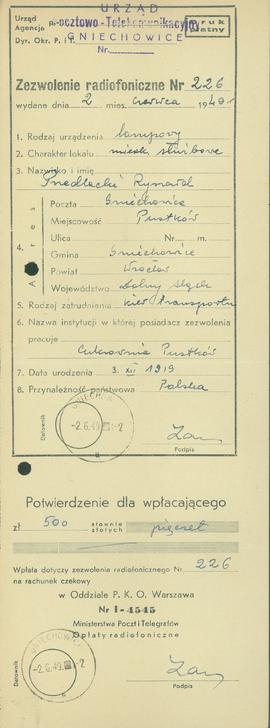 URZĄD
Urząd
Agencja p.
pocztowo-Telekomunikacyjny
Druk płatny
Dyr. Okr. P. i T.
GNIECHOWICE
Nr.
Zezwolenie radiofoniczne Nr 226
wydane dnia 2 mies. czerwca 1949 r.
1. Rodzaj urządzenia lampowy
2. Charakter lokalu mieszk. służbowe
3. Nazwisko i imię
Ryszard
4. Adres
Poczta Gniechowice
Miejscowość Pustków
Ulica Nr. m.
Gmina Gniechowice
Powiat Wrocław
Województwo Dolny Śląsk
5. Rodzaj zatrudnienia kier. transportu
6. Nazwa instytucji w której posiadacz zezwolenia
pracuje
Cukrownia Pustków
7. Data urodzenia 3. XII 1919
8. Przynależność państwowa Polska
Datownik
GNIECHOWICE
-2.6.49
Podpis
Potwierdzenie dla wpłacającego
zł 500 słownie złotych pięćset
Wpłata dotyczy zezwolenia radiofonicznego Nr 226
na rachunek czekowy
w Oddziale P. K. O. Warszawa
Nr I-4545
Ministerstwa Poczt i Telegrafów
Opłaty radiofoniczne
Datownik
GNIECHOWICE
-2.6.49
Podpis